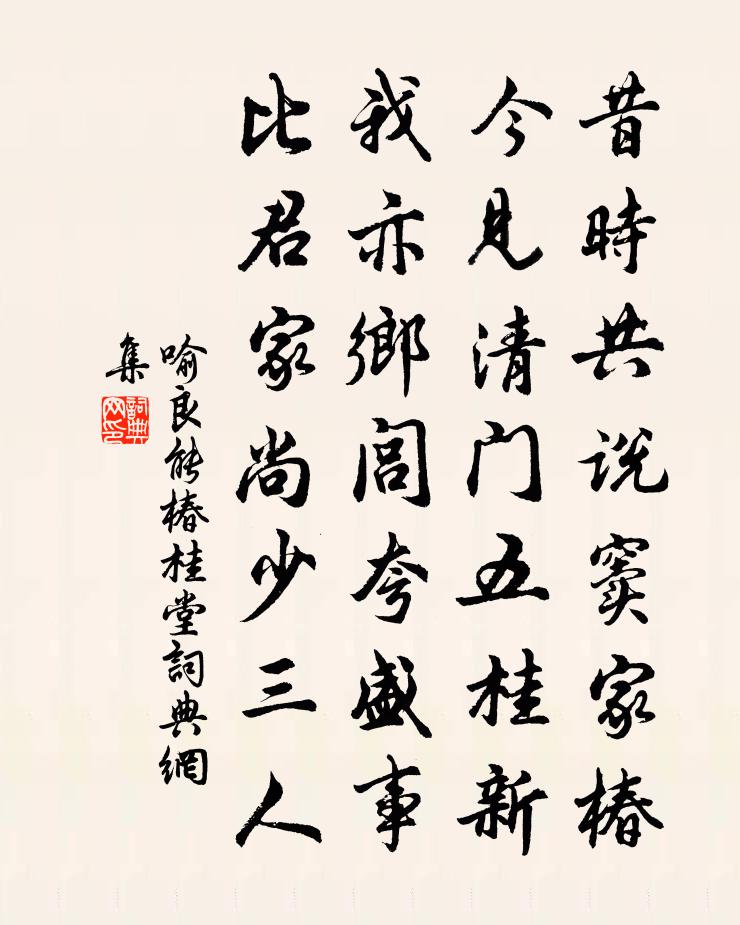 昔時共説竇家椿
今見清门五桂新
我亦鄉閭夸盛事
比君家尚少三人
喻良能椿桂堂詞典網
集
詞典
网印